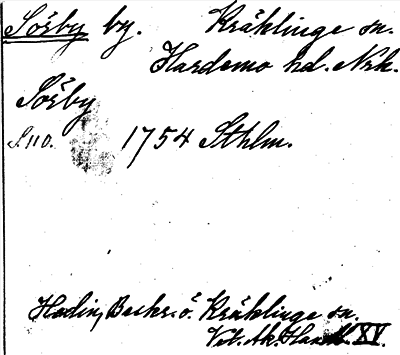 Sörby by. Kräklinge sn.
Hardemo hd. Nrk.
Sörby
S. 110. 1754 Sthlm.
Hedin, Beskr. ö. Kräklinge sn.
Vet. Ak. Handl. XV.